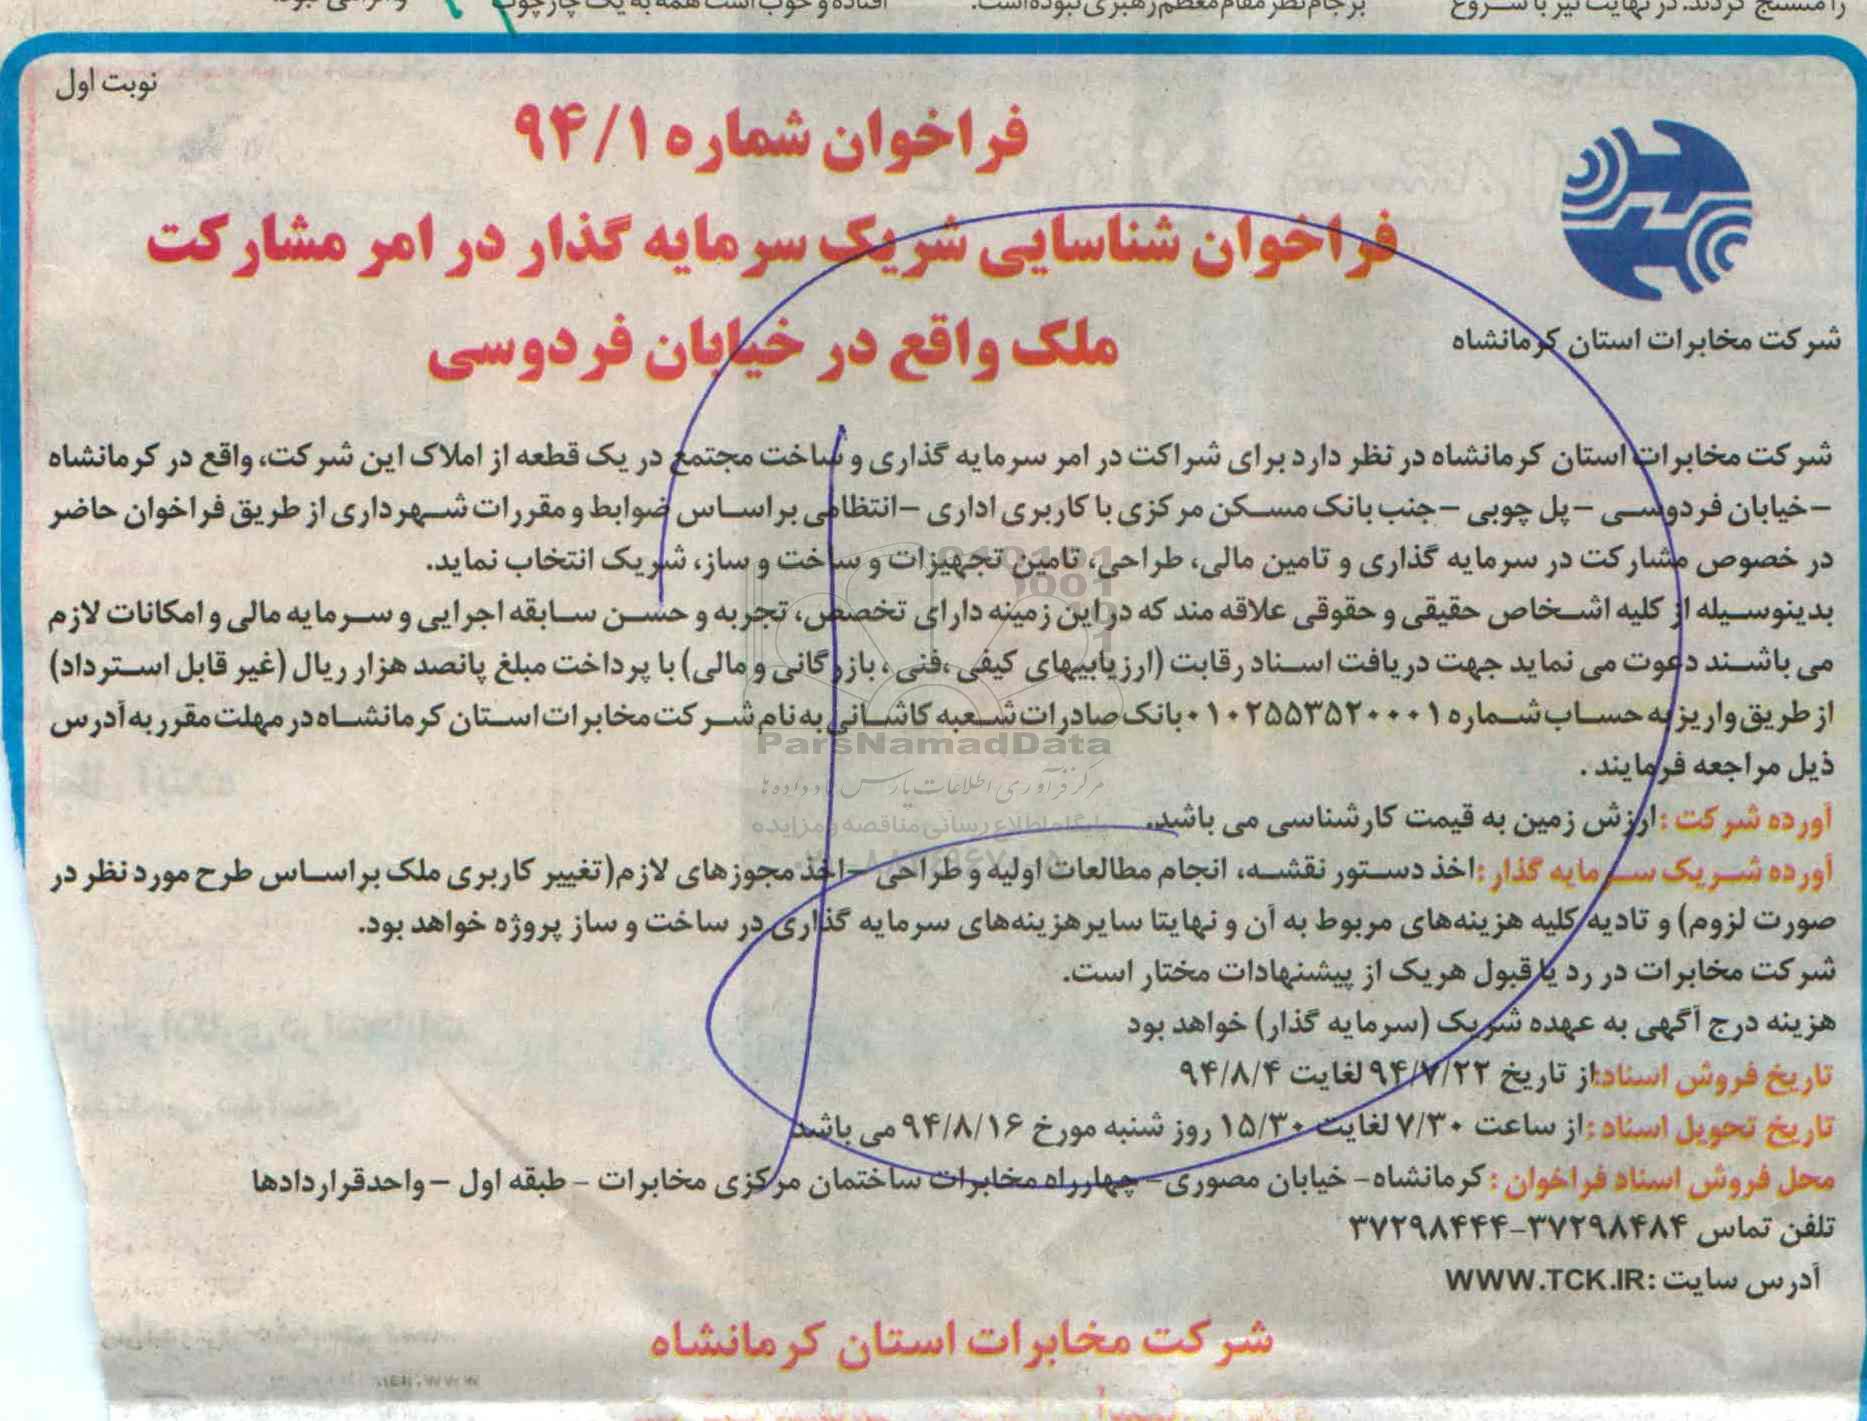 نوبت اول
فراخوان شماره ۹۴/۱
فراخوان شناسایی شریک سرمایه گذار در امر مشارکت
ملک واقع در خیابان فردوسی
شرکت مخابرات استان کرمانشاه
شرکت مخابرات استان کرمانشاه در نظر دارد برای شراکت در امر سرمایه گذاری و ساخت مجتمع در یک قطعه از املاک این شرکت، واقع در کرمانشاه
-خیابان فردوسی -پل چوبی -جنب بانک مسکن مرکزی با کاربری اداری -انتظامی براساس ضوابط و مقررات شهرداری از طریق فراخوان حاضر
در خصوص مشارکت در سرمایه گذاری و تامین مالی، طراحی، تامین تجهیزات و ساخت و ساز، شریک انتخاب نماید.
بدینوسیله از کلیه اشخاص حقیقی و حقوقی علاقه مند که در این زمینه دارای تخصص، تجربه و حسن سابقه اجرایی و سرمایه مالی و امکانات لازم
می باشند دعوت می نماید جهت دریافت اسناد رقابت (ارزیابیهای کیفی ،فنی ، بازرگانی و مالی) با پرداخت مبلغ پانصد هزار ریال (غیر قابل استرداد)
از طریق واریز به حساب شماره ۰۱۰۲۵۵۳۵۲۰۰۰۱ بانک صادرات شعبه کاشانی به نام شرکت مخابرات استان کرمانشاه در مهلت مقرر به آدرس
ذیل مراجعه فرمایند .
آورده شرکت :ارزش زمین به قیمت کارشناسی می باشد.
آورده شریک سرمایه گذار :اخذ دستور نقشه، انجام مطالعات اولیه و طراحی -اخذ مجوزهای لازم(تغییر کاربری ملک براساس طرح مورد نظر در
صورت لزوم) و تادیه کلیه هزینه‌های مربوط به آن و نهایتا سایرهزینه‌های سرمایه گذاری در ساخت و ساز پروژه خواهد بود.
شرکت مخابرات در رد یا قبول هریک از پیشنهادات مختار است.
هزینه درج آگهی به عهده شریک (سرمایه گذار) خواهد بود
تاریخ فروش اسناد:از تاریخ ۹۴/۷/۲۲ لغایت ۹۴/۸/۴
تاریخ تحویل اسناد :از ساعت ۷/۳۰ لغایت ۱۵/۳۰ روز شنبه مورخ ۹۴/۸/۱۶ می باشد
محل فروش اسناد فراخوان : کرمانشاه- خیابان مصوری- چهارراه مخابرات ساختمان مرکزی مخابرات - طبقه اول -واحدقراردادها
تلفن تماس ۳۷۲۹۸۴۸۴-۳۷۲۹۸۴۴۴
آدرس سایت :WWW.TCK.IR
شرکت مخابرات استان کرمانشاه
ParsNamadData
مرکز فرآوری اطلاعات پارس نماد داده ها
پایگاه اطلاع رسانی مناقصه و مزایده